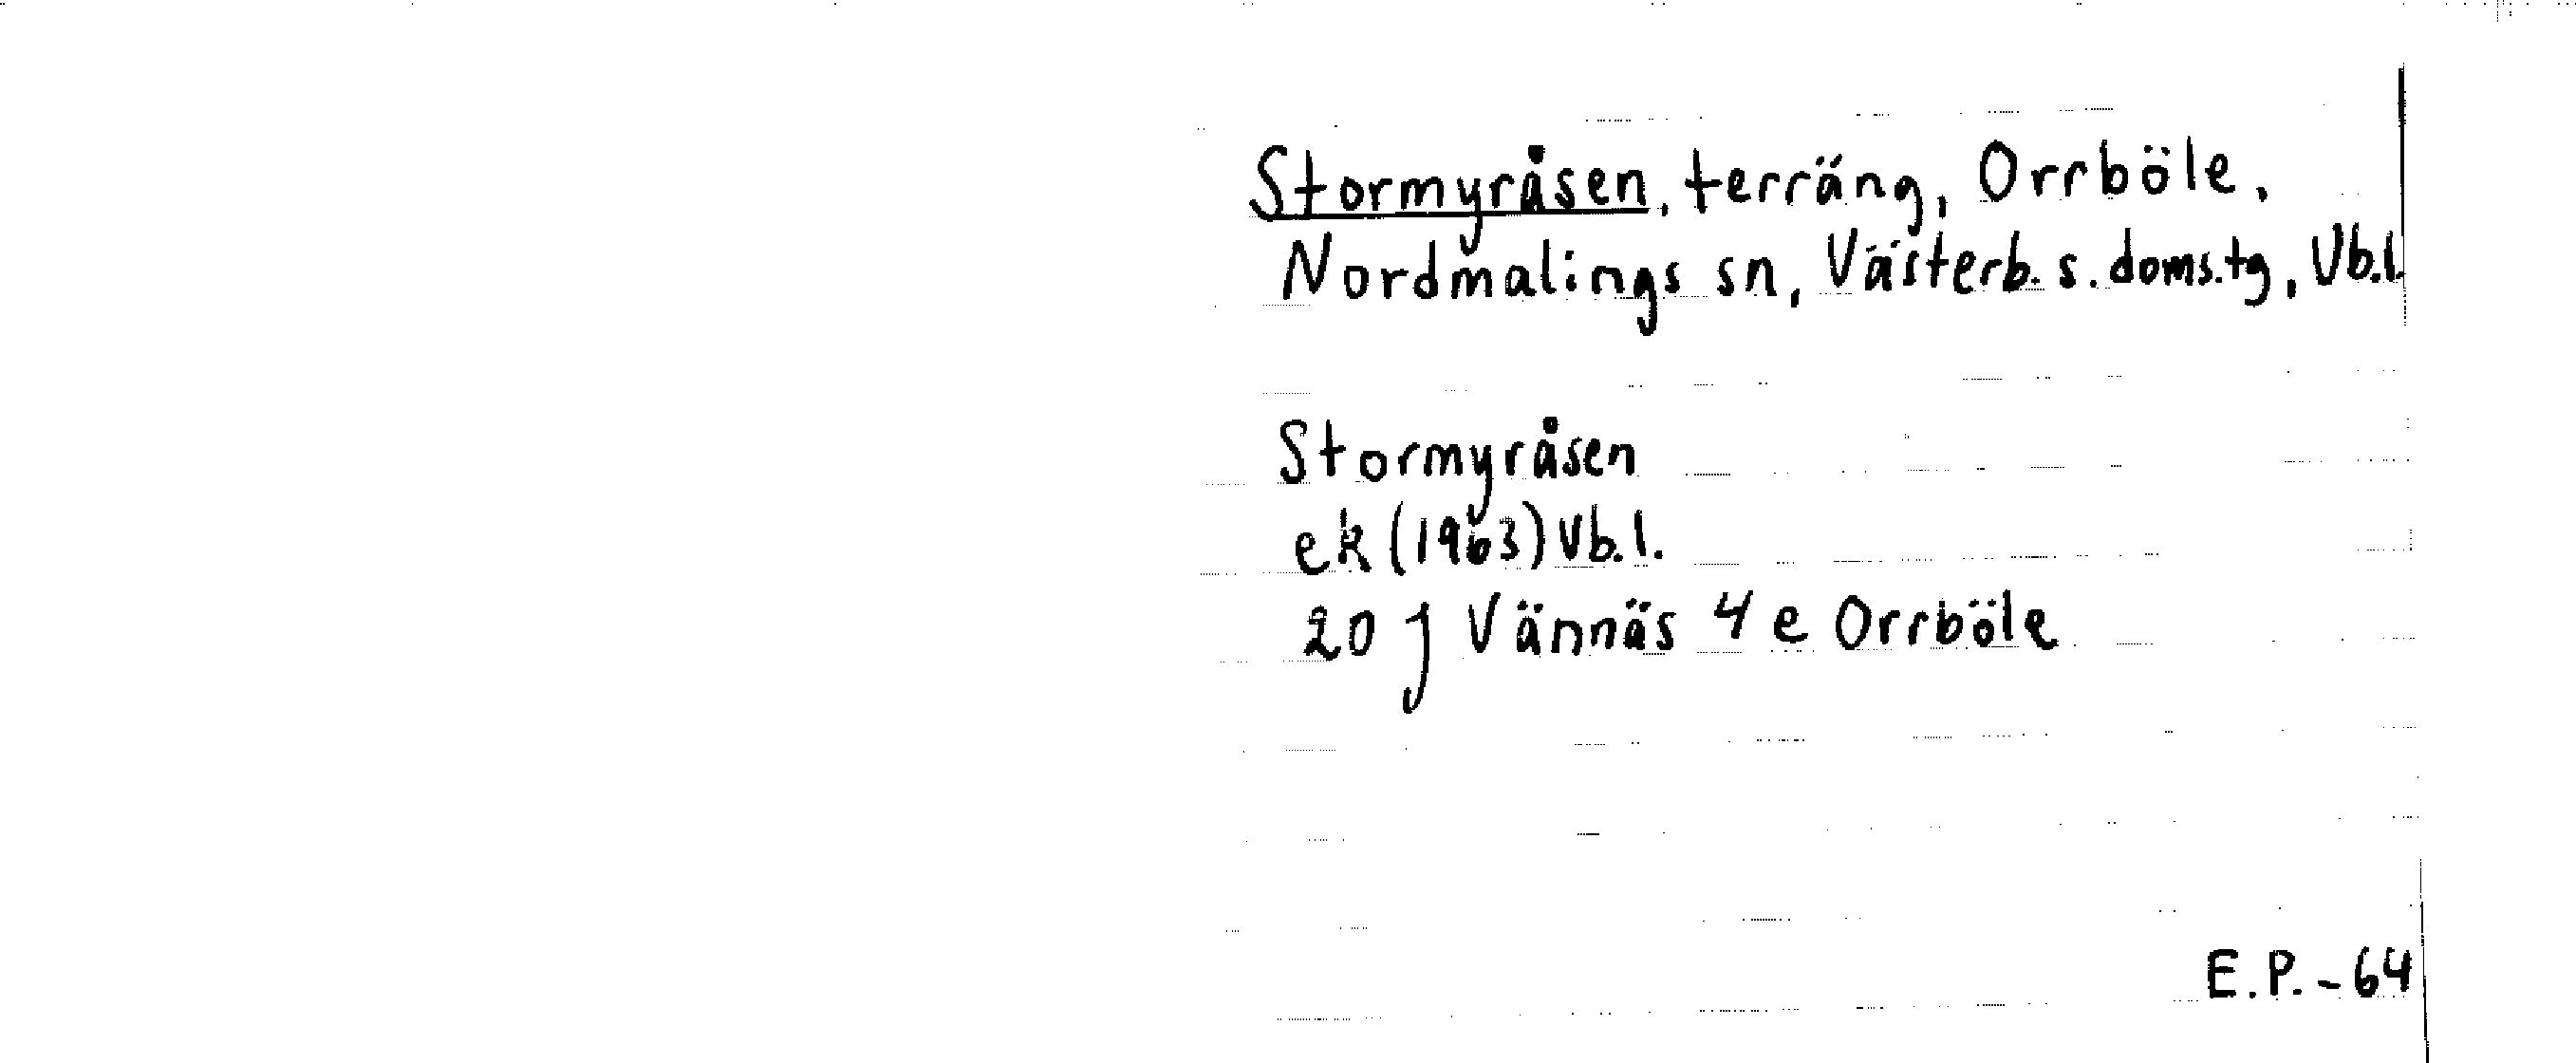 Stormyråsen, terräng, Orrböle,
Nordmalings sn, Västerb. s. doms.tg, Vb.l.
Stormyråsen
ek (1963) Vb.l.
20 J Vännäs 4 e Orrböle
E.P. - 64